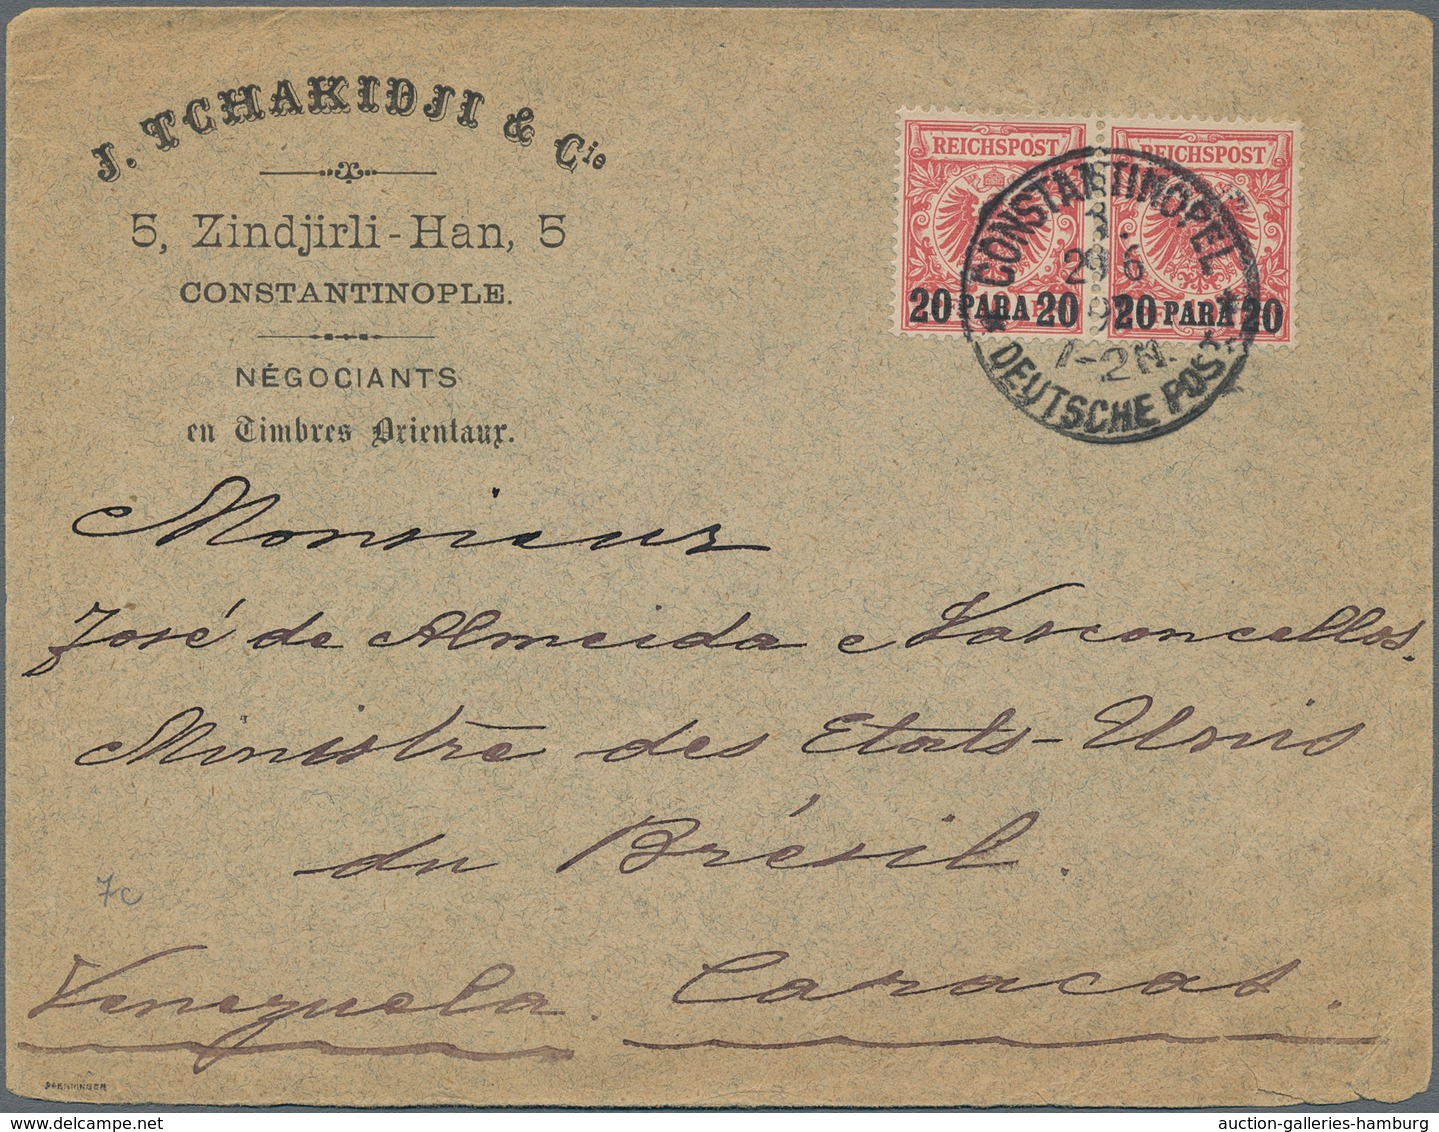 J. TCHAKIDJI & Cie
5, Zindjirli-Han, 5
CONSTANTINOPLE.
NÉGOCIANTS
en Timbres Orientaux.
REICHSPOST
20 PARA 20
REICHSPOST
20 PARA 20
CONSTANTINOPEL
29 6
1-2N.
* DEUTSCHE POST *
Monsieur
José de Almeida e Vasconcellos.
Ministre des Etats-Unis
du Brésil.
7c
Venezuela. Caracas.
auction-galleries-hamburg